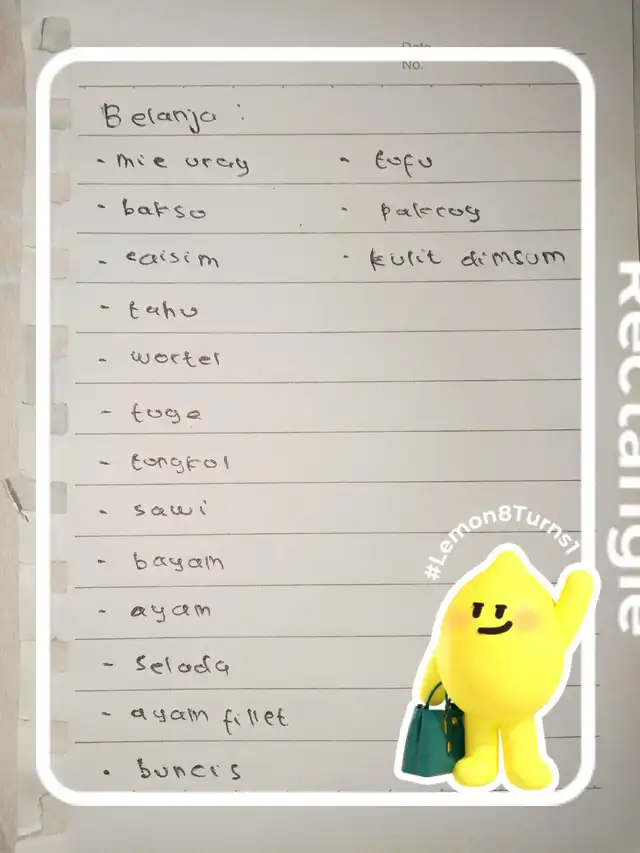 Date
No.
Belanja :
- mie uray
- bakso
- caisim
- tahu
- wortel
- toge
- tongkol
- sawi
- bayam
- ayam
- selada
- ayam fillet
- buncis
- tofu
- pakcoy
- kulit dimsum
#Lemon8Turns1
Rectangle